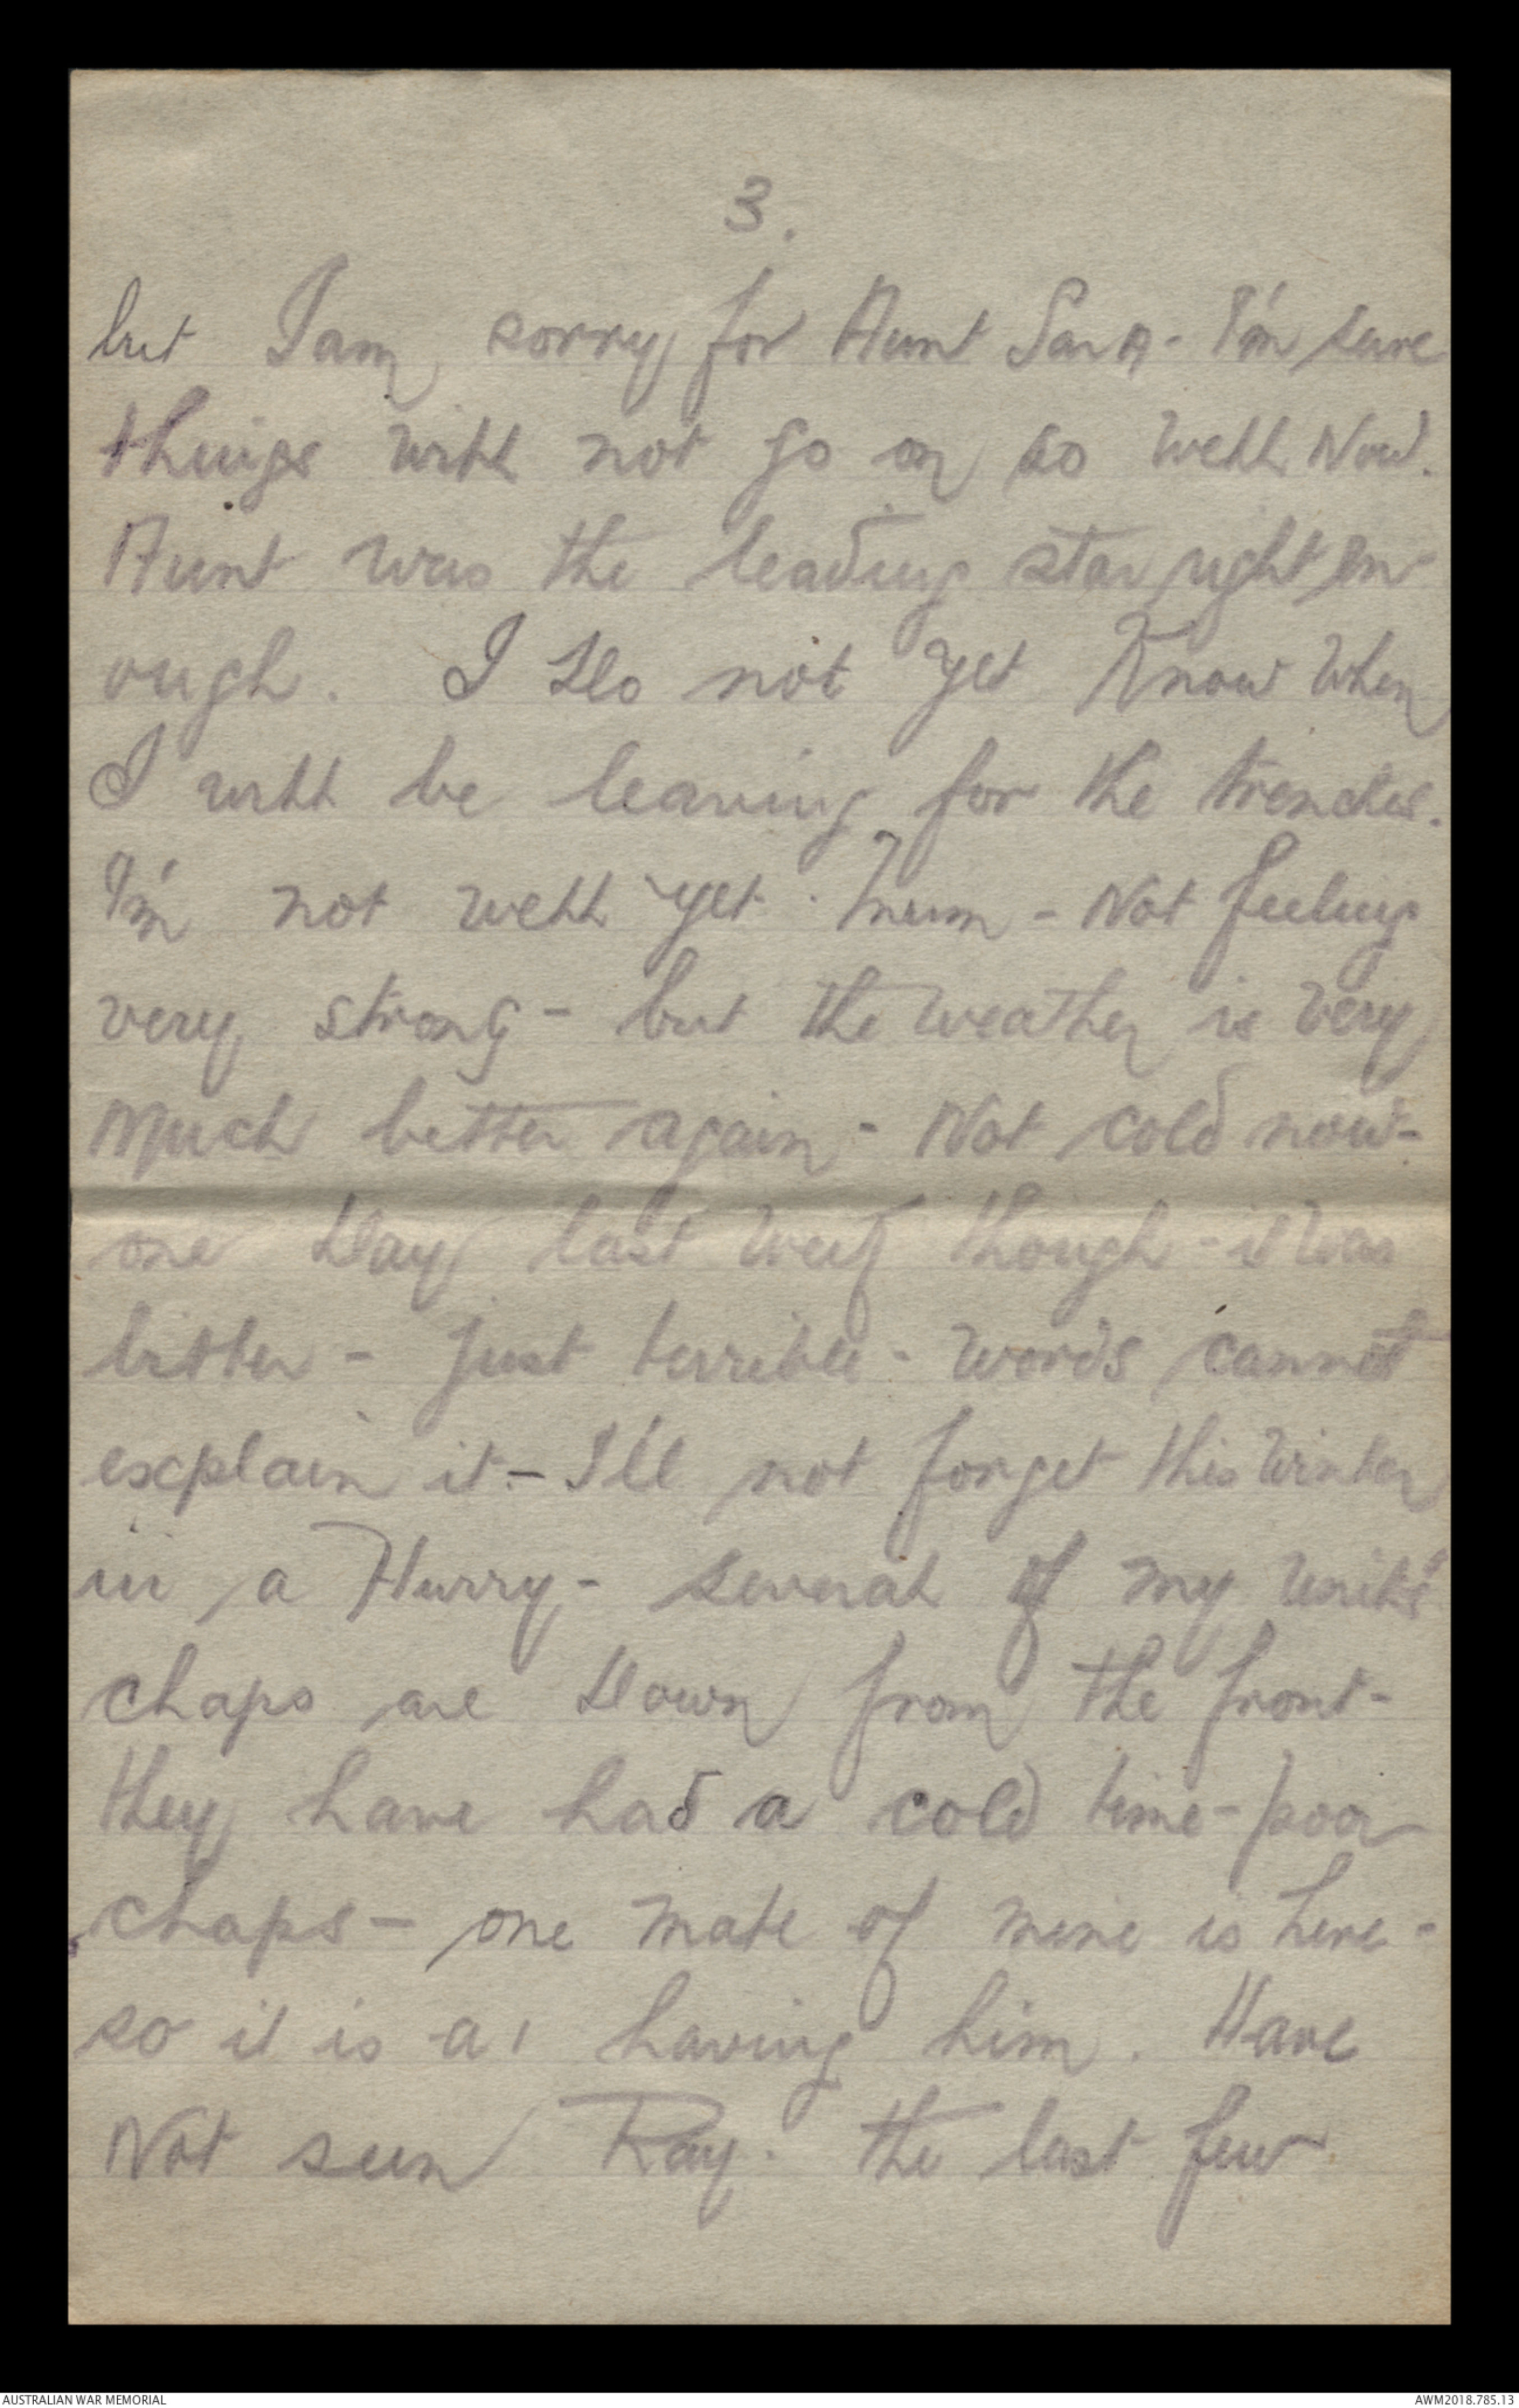 3.
but I am sorry for Aunt Sara - I'm sure
things will not go on so well Now.
Aunt was the leading star right en-
ough. I do not yet Know when
I will be leaving for the trenches.
I'm not well yet Mum - Not feeling
very strong - but the weather is very
Much better again - Not cold now -
one day last week though - it was
bitter - just terrible - words cannot
explain it - I'll not forget this Winter
in a Hurry - several of my unit's
chaps are down from the front -
they have had a cold time - poor
chaps - one mate of mine is here -
so it is having him. Have
Not seen Ray. the last few
AUSTRALIAN WAR MEMORIAL
AWM2018.785.13